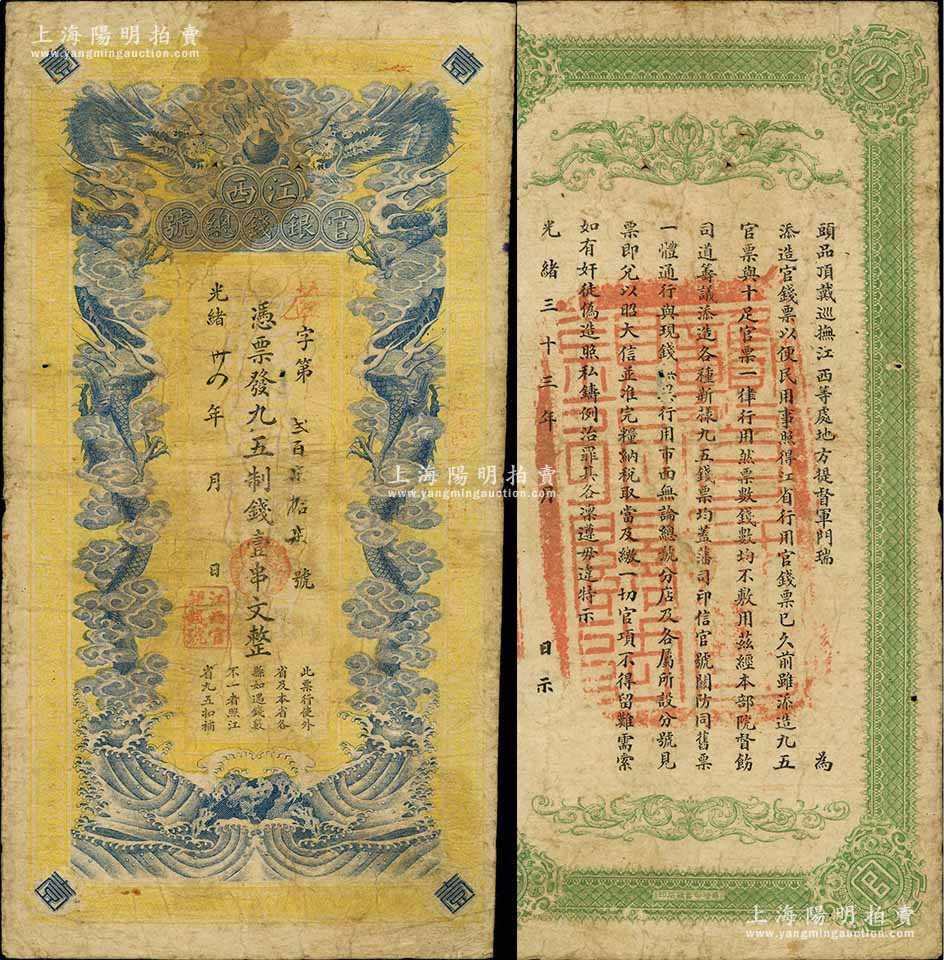 上海陽明拍賣
www.yangmingauction.com
壹
壹
江西
官銀錢總號
字第 貳百 拾 號
憑票發九五制錢壹串文整
光緒卅四年 月 日
江西官銀錢號
此票行使外
省及本省各
縣如遇錢數
不一者照江
省九五扣補
壹
壹
上海陽明拍賣
www.yangmingauction.com
江
頭品頂戴巡撫江西等處地方提督軍門瑞 為
添造官錢票以便民用事照得江省行用官錢票已久前雖添造九五
官票與十足官票一律行用然票數錢數均不敷用茲經本部院督飭
司道籌議添造各種新樣九五錢票均蓋藩司印信官號關防同舊票
一體通行與現錢無異行用市面無論總號分店及各屬所設分號見
票即兌以昭大信並准完糧納稅取當及繳一切官項不得留難需索
如有奸徒偽造照私鑄例治罪其各凜遵毋違特示
光緒三十三年 月 日示
西
上海陽明拍賣
www.yangmingauction.com